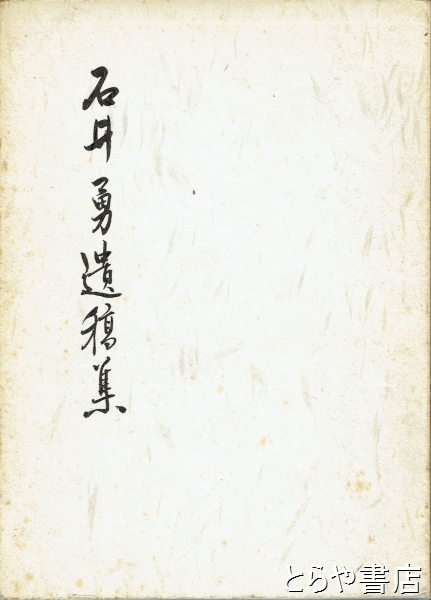 石井勇遺稿集
とらや書店